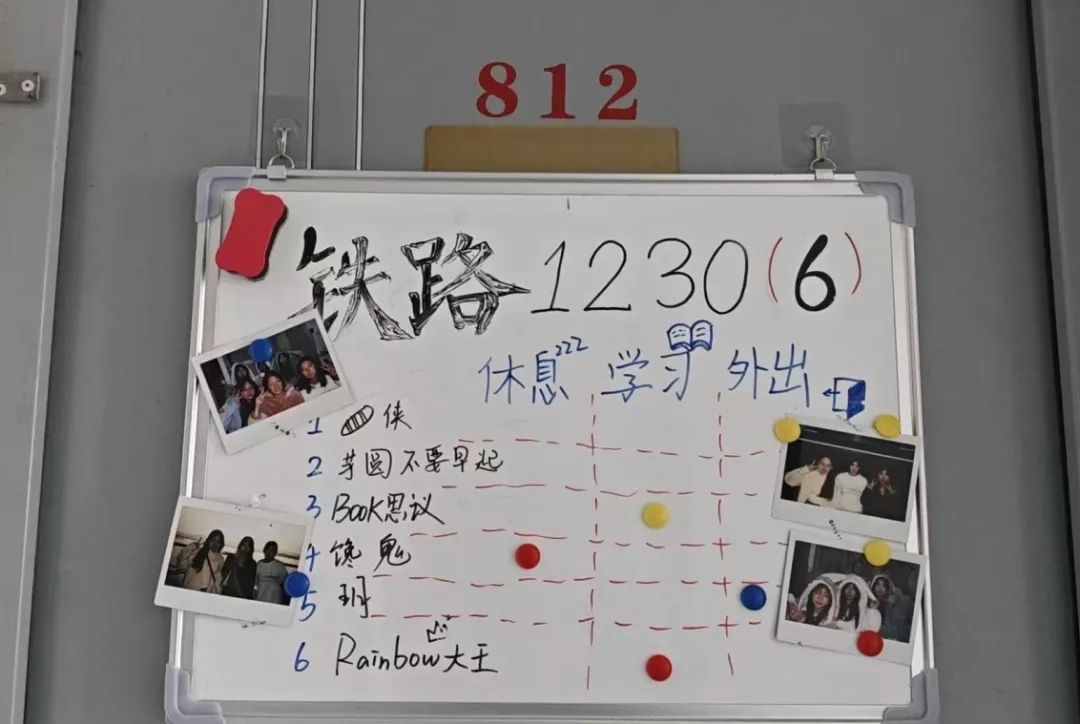 812
铁路 1230(6)
休息zzz 学习 外出
1 侠
2 芋圆不要早起
3 Book思议
4 馋鬼
5 班
6 Rainbow大王